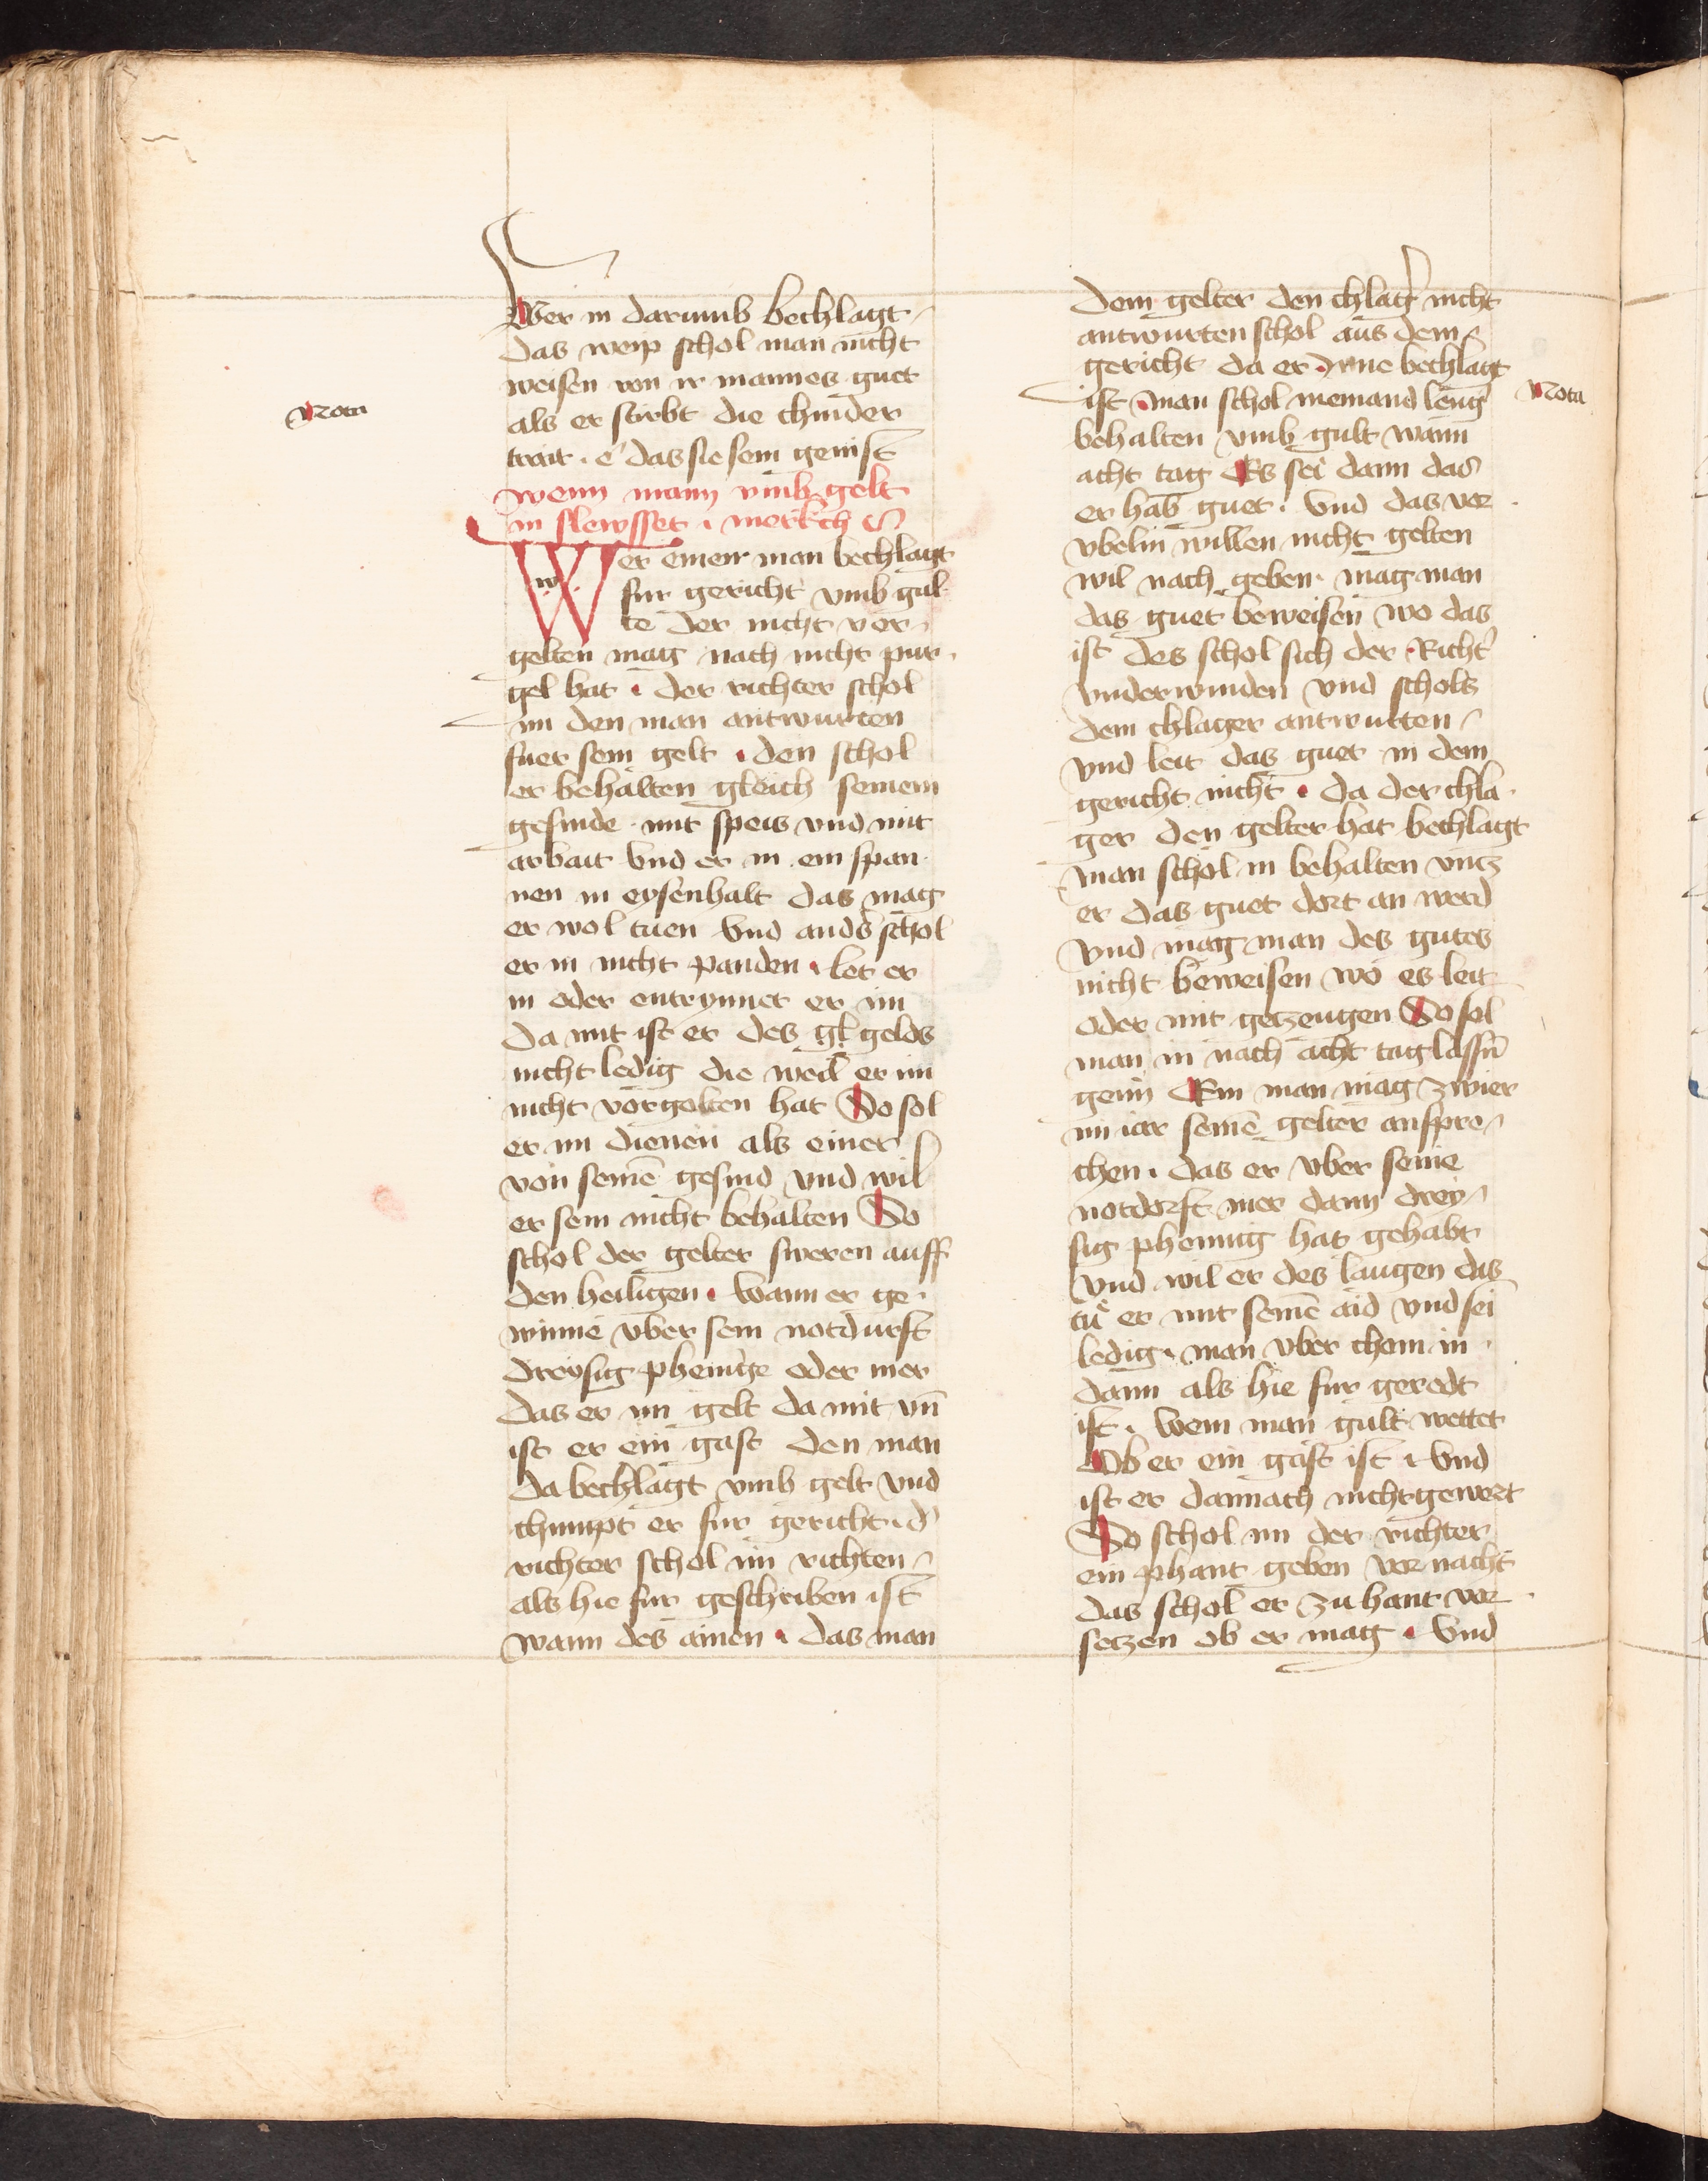 Wer in darumb bechlagt
das weip schol man nicht
weisen von ir mannes guet
als er stirbt die chinder
Nota
trait · e das sie sein genist
wenn mann umb gelt
in slewsset · merkch
Wer einen man bechlagt
w
fur gericht umb gul
te der nicht ver
gelten mag nach nicht pur
gel hat · der richter schol
im den man antwurten
fuer sein gelt · den schol
er behalten gleich seinem
gesinde · mit speis vnd mit
arbait Vnd er in ein span
nen in eysenhalt das mag
er wol tuen Vnd anders schol
er in nicht panden · let er
in oder entrynnet er im
da mit ist er des gl gelds
nicht ledig die weil er im
nicht vergolten hat So sol
er im dienen als einer
von seinē gesind vnd wil
er sein nicht behalten So
schol der gelter sweren auff
den heiligen · wann er ge
winne vber sein notdurft
dreysig phenige oder mer
das er im gelt da mit vn̄
ist er ein gast den man
da bechlagt vmb gelt vnd
chumpt er fur gericht · d'
richter schol im richten
als hie fur geschriben ist
wann des ainen · das man
dem gelter den chlag' nicht
antwurten schol aus dem
gericht da er Inne bechlagt
ist · man schol niemand leng'
Nota
behalten vmb gult wann
acht tag Es sei dann das
er hab guet · Vnd das vor
vbelin willen nicht gelten
wil nach geben · mag man
das guet beweisen wo das
ist des schol sich der Richt'
vnderwinden vnd schols
dem chlager antwurten
vnd leit das guet in dem
gericht nicht · da der chla
ger den gelter hat bechlagt
man schol in behalten vncz
er das guet dort an werd
Vnd mag man des gutes
nicht beweisen wo es leit
oder mit getzeugen So sol
man in nach acht tag lassn̄
genn Ein man mag zwier
im iar seinē gelter anspre
chen · das er vber seine
notdorft mer dann drey
sig phennig hat gehabt
Vnd wil er des laugen das
tuͤ er mit seinē aid vnd sei
ledig · man vber chom in
dann als hie fur geredt
ist · Wem man gult wettet
Ob er ein gast ist · Vnd
ist er dannach nicht gewert
So schol im der richter
ein phant geben vor nacht
das schol er zu hant vor
setzen ob er mag · Vnd